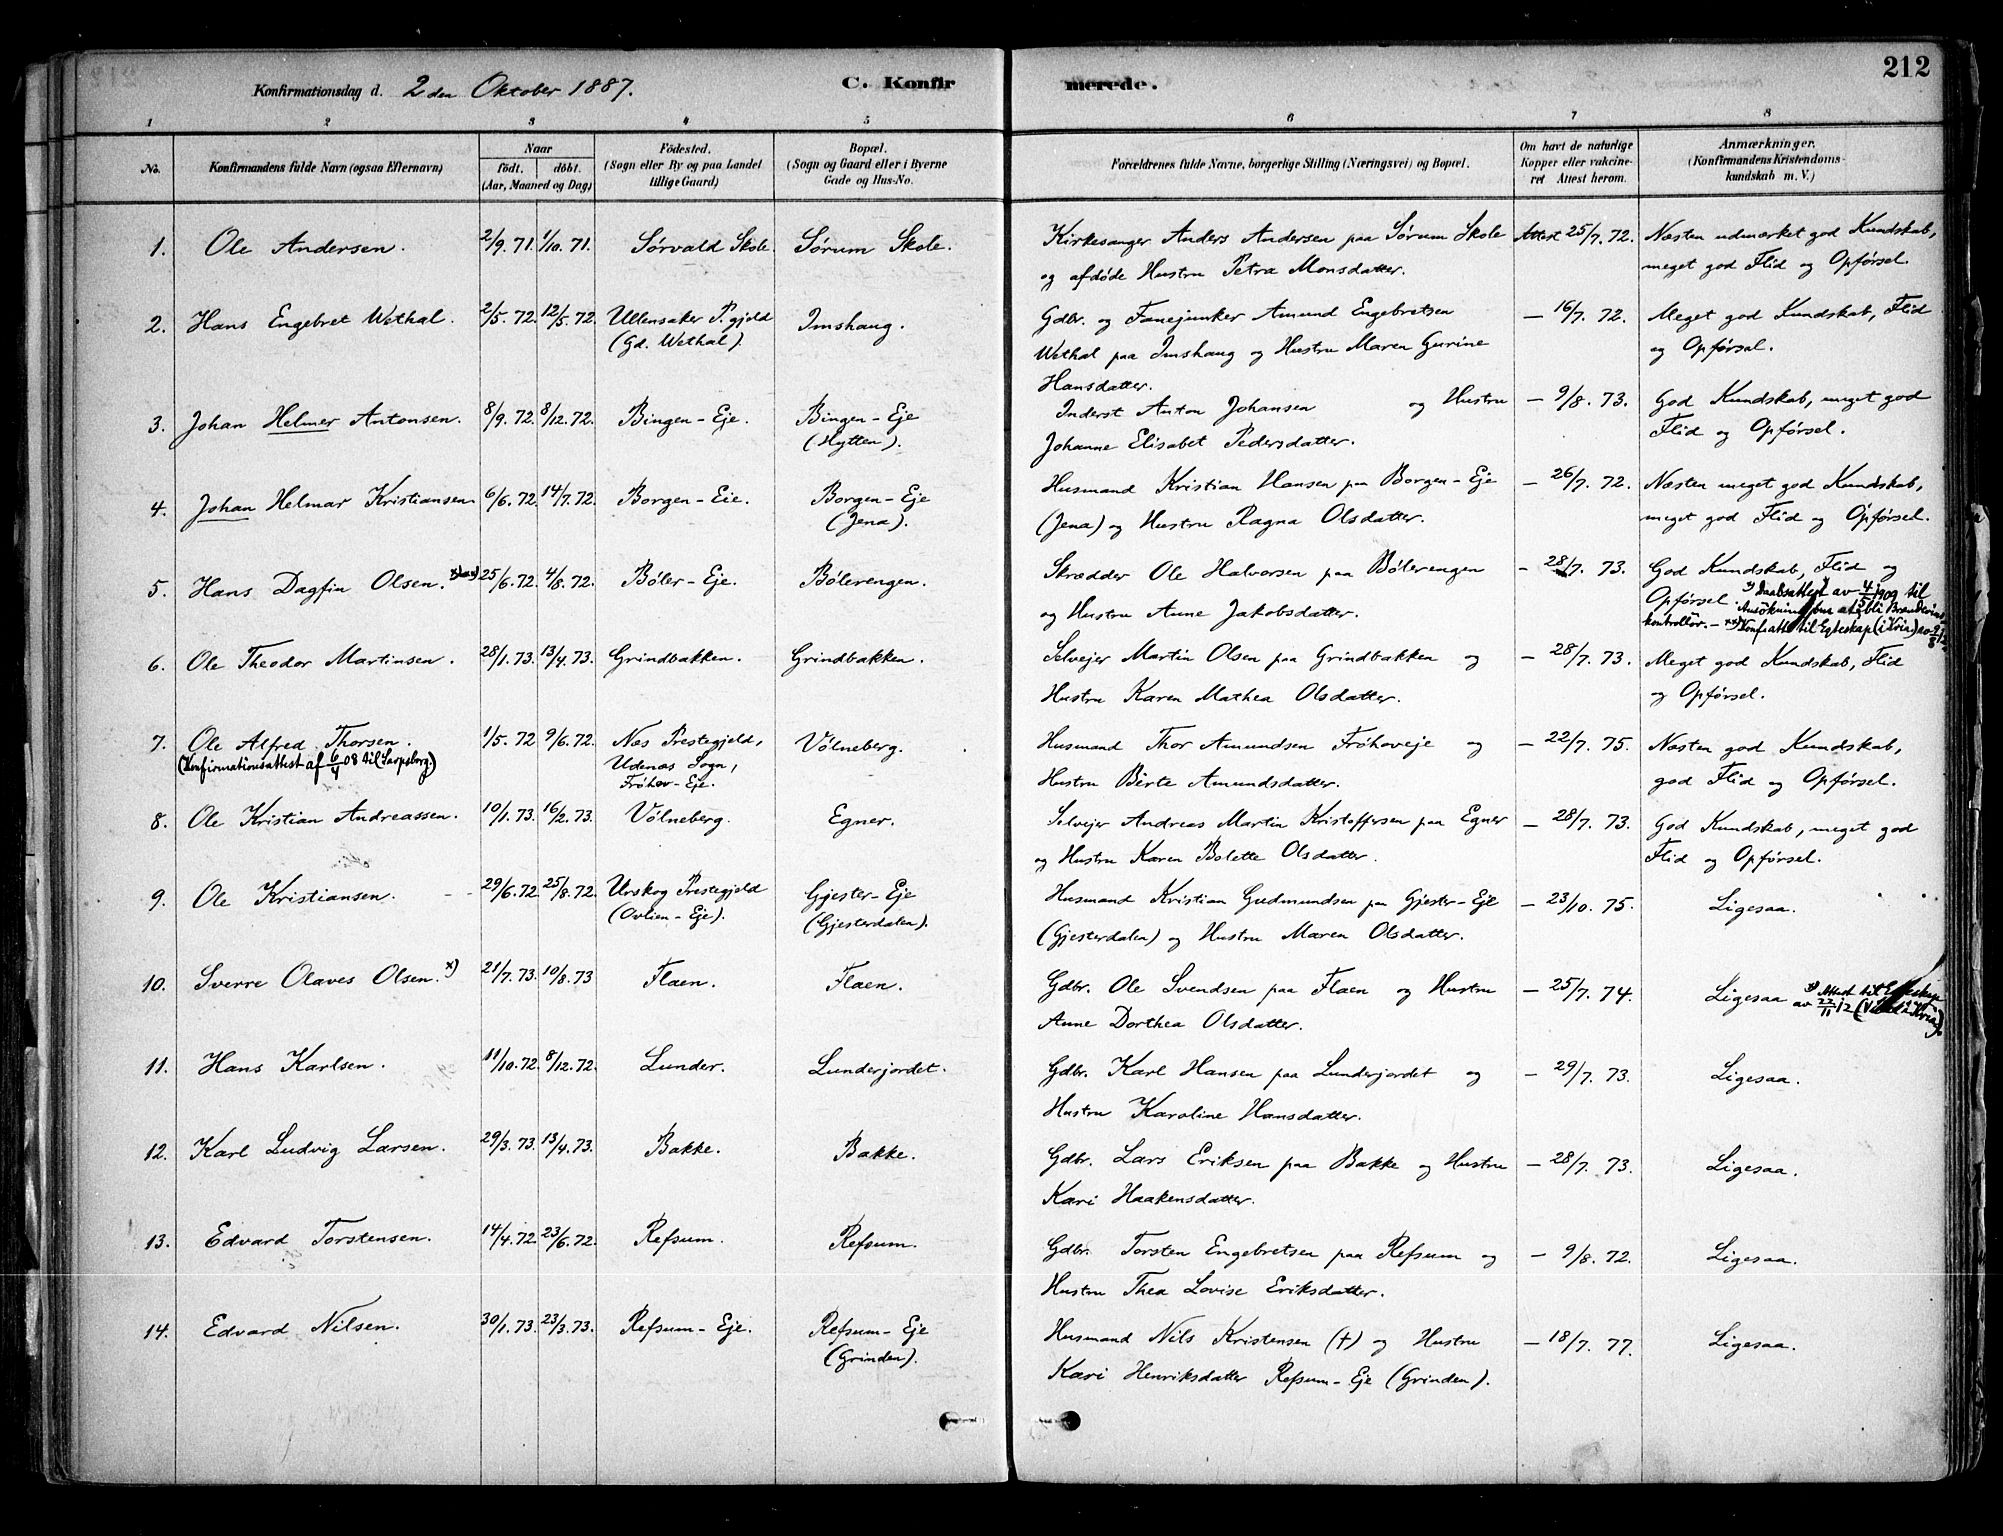 212
Konfirmationsdag d. 2den Oktober 1887. C. Konfir merede.
1 2 3 4 5 6 7 8
No. Konfirmandens fulde Navn (ogsaa Efternavn) Naar født. døbt. (Aar, Maaned og Dag) Fødested. (Sogn eller By og paa Landet tillige Gaard) Bopæl. (Sogn og Gaard eller i Byerne Gade og Hus-No. Forældrenes fulde Navne, borgerlige Stilling (Næringsvei) og Bopæl. Om havt de naturlige Kopper eller vakcineret Attest herom. Anmærkninger. (Konfirmandens Kristendomskundskab m. V.)
1. Ole Andersen. 2/9. 71. 1/10. 71. Sørvald Skole. Sørum Skole. Kirkesanger Anders Andersen paa Sørum Skole Attest 25/7. 72. Næsten udmærket god Kundskab,
og afdøde Hustru Petra Monsdatter. meget god Flid og Opførsel.
2. Hans Engebret Wethal. 2/5. 72. 12/5. 72. Ullensaker P.gjeld Imshaug. Gdbr. og Fanejunker Amund Engebretsen — 16/7. 72. Meget god Kundskab, Flid
(Gd. Wethal). Wethal paa Imshaug og Hustru Maren Gurine og Opførsel.
Hansdatter.
3. Johan Helmer Antonsen. 8/9. 72. 8/12. 72. Bingen-Eje. Bingen-Eje Inderst Anton Johansen og Hustru — 9/8. 73. God Kundskab, meget god
(Hytten). Johanne Elisabet Pedersdatter. Flid og Opførsel.
4. Johan Helmar Kristiansen 6/6. 72. 14/7. 72. Borgen-Eie. Borgen-Eje Husmand Kristian Hansen paa Borgen-Eje — 26/7. 72. Næsten meget god Kundskab,
(Jena). (Jena) og Hustru Ragna Olsdatter. meget god Flid og Opførsel.
5. Hans Dagfin Olsen. 25/6. 72. 4/8. 72. Bøler-Eje. Bølerengen. Skrædder Ole Halvorsen paa Bølerengen — 28/7. 73. God Kundskab, Flid og
og Hustru Anne Jakobsdatter. Opførsel. x) Daabsattest av 4/5 1909 til
Ansökning om at bli Brændevins
kontrollør. — xx) Konf.att. til Egteskap (i Kria) av
6. Ole Theodor Martinsen. 28/1. 73. 13/4. 73. Grindbakken. Grindbakken. Selvejer Martin Olsen paa Grindbakken og — 28/7. 73. Meget god Kundskab, Flid
Hustru Karen Mathea Olsdatter. og Opførsel.
7. Ole Alfred Thorsen. 1/5. 72 9/6. 72. Nes Prestegjeld, Vølneberg. Husmand Thor Amundsen Frøhoveje og — 22/7. 75. Næsten god Kundskab,
(Konfirmationsattest af 6/4 08 til Sarpsborg.) Udenæs Sogn, Hustru Birte Amundsdatter. god Flid og Opførsel.
Frøhov-Eje.
8. Ole Kristian Andreassen. 10/1. 73. 16/2. 73. Vølneberg. Egner. Selvejer Andreas Martin Kristoffersen paa Egner — 28/7. 73. God Kundskab, meget god
og Hustru Karen Bolette Olsdatter. Flid og Opførsel.
9. Ole Kristiansen. 29/6. 72. 25/8. 72. Urskog Prestegjeld Gjester-Eje Husmand Kristian Gudmundsen paa Gjester-Eje — 23/10. 75. Ligesaa.
(Ovlien-Eje). (Gjesterdalen). (Gjesterdalen) og Hustru Maren Olsdatter.
10. Sverre Olaves Olsen. x) 21/7. 73. 10/8. 73 Flaen. Flaen. Gdbr. Ole Svendsen paa Flaen og Hustru — 25/7. 74. Ligesaa x) Attest til Egteskap
Anne Dorthea Olsdatter. av 22/11 12
11. Hans Karlsen. 11/10. 72. 8/12. 72. Lunder. Lunderjordet. Gdbr. Karl Hansen paa Lunderjordet og — 29/7. 73. Ligesaa.
Hustru Karoline Hansdatter.
12. Karl Ludvig Larsen. 29/3. 73. 13/4. 73. Bakke. Bakke. Gdbr. Lars Eriksen paa Bakke og Hustru — 28/7. 73. Ligesaa.
Kari Haakensdatter.
13. Edvard Torstensen. 14/4. 72. 23/6. 72. Refsum. Refsum. Gdbr. Torsten Engebretsen paa Refsum og — 9/8. 72. Ligesaa.
Hustru Thea Lovise Eriksdatter.
14. Edvard Nilsen. 30/1. 73. 23/3. 73. Refsum-Eje. Refsum-Eje Husmand Nils Kristensen (†) og Hustru — 18/7. 77. Ligesaa.
(Grinden). Kari Henriksdatter Refsum-Eje (Grinden).